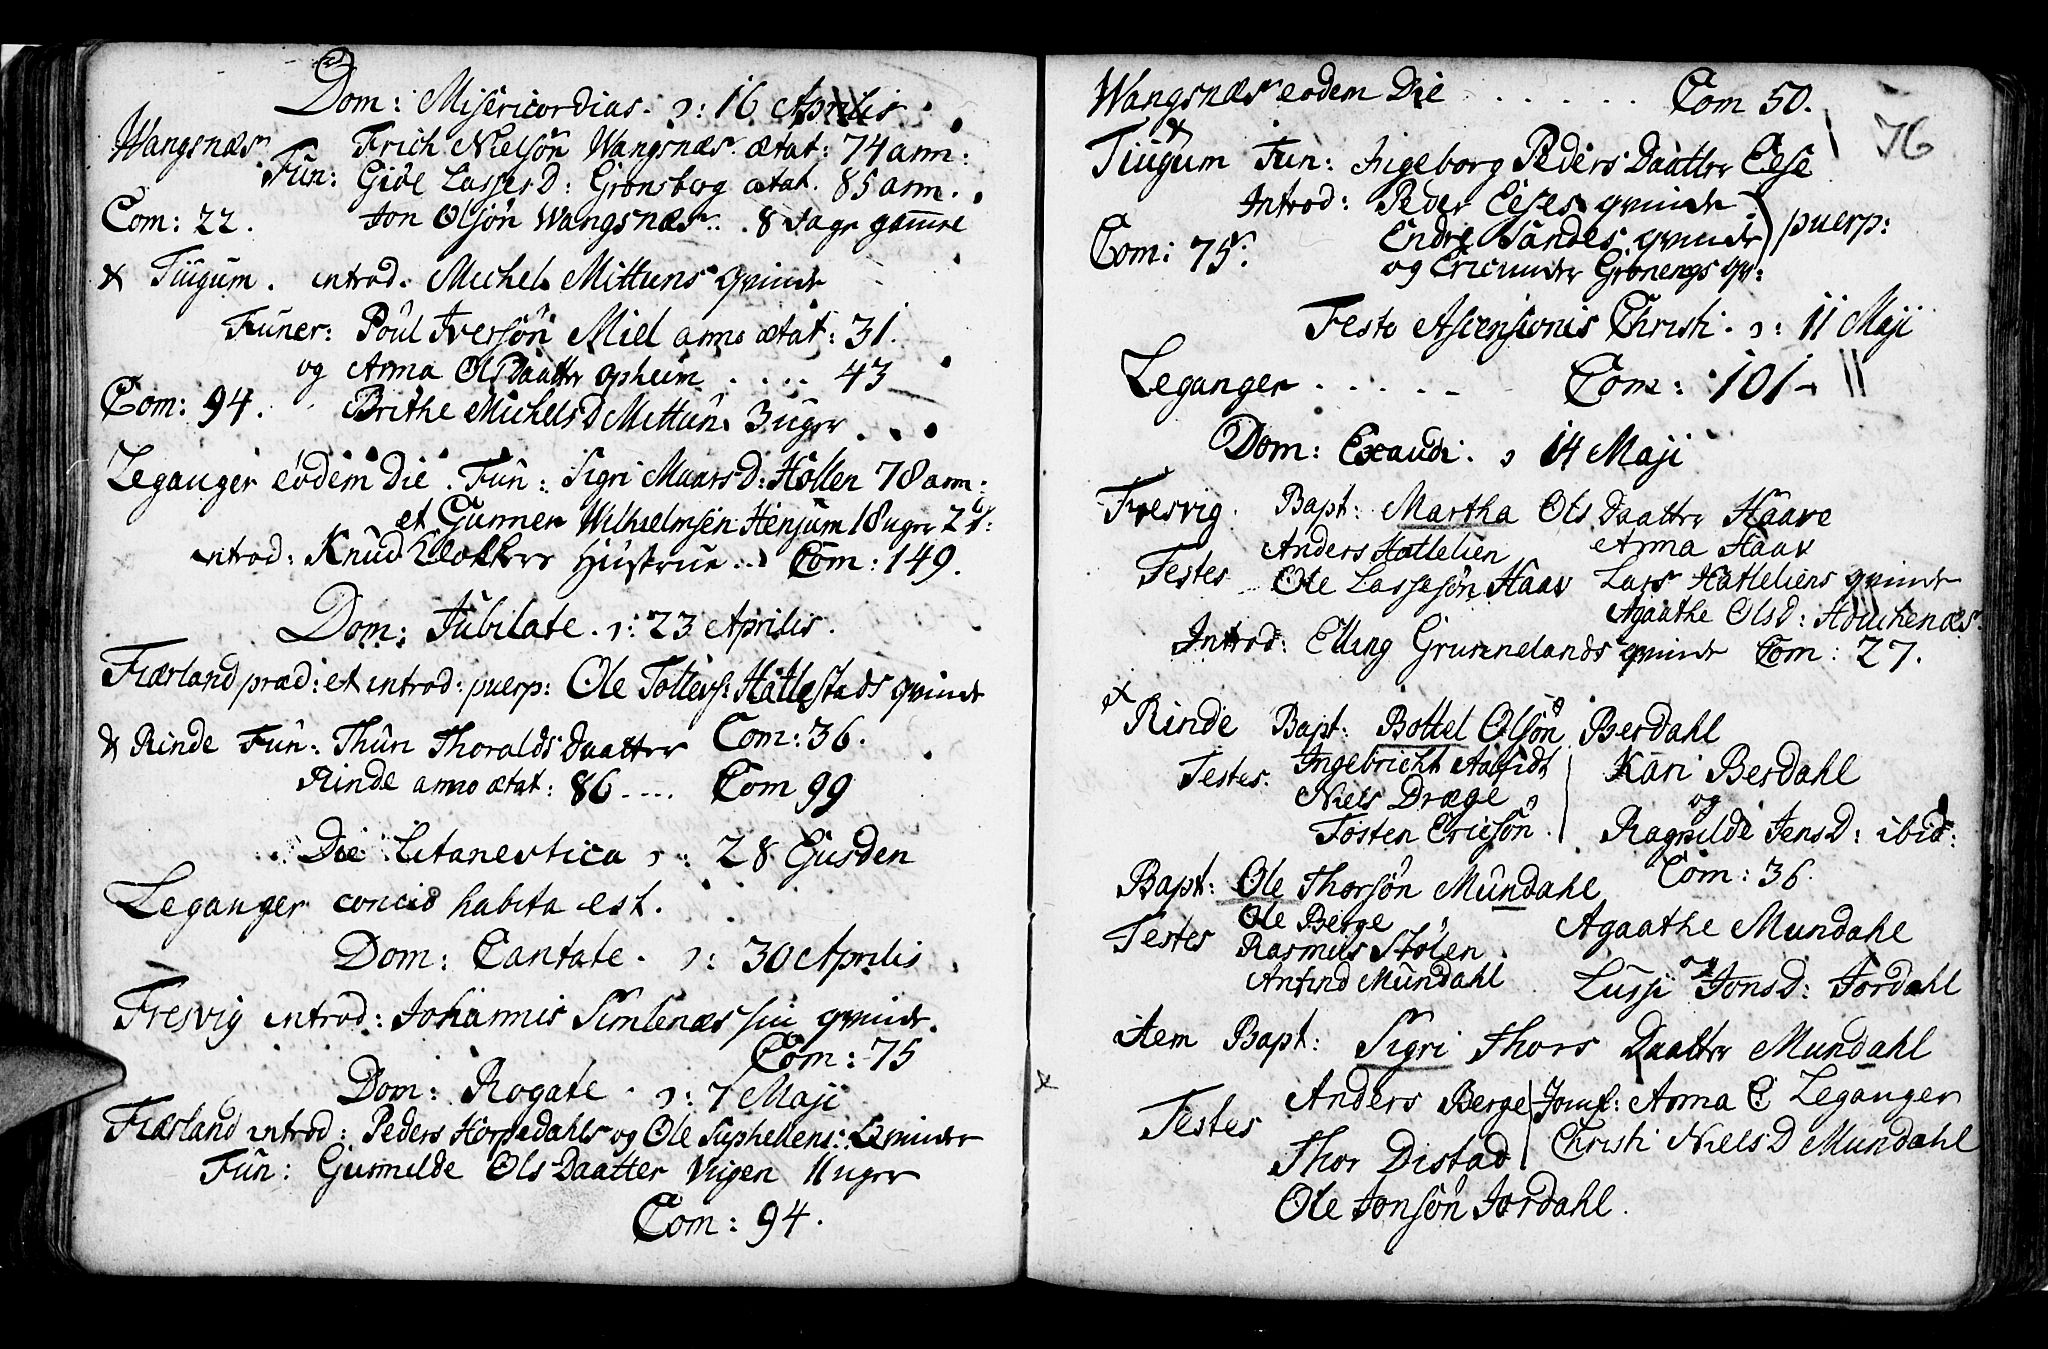 Dom: Misericordias. d: 16 Aprilis.
Wangsnæs
Fun: Erich Nielsön Wangsnæs. ætat: 74 ann:
Giöe LassesD: Grønsberg ætat. 85 ann.
Com: 22. Jon Olsön Wangsnæs .. 8 dage gamle
Tiugum. introd. Michel Mittuns qvinde
Funer: Poul Iversön Miel anno ætat: 31.
og Anna OlsDaatter Opheim .... 43
Com: 94. Brithe MichelsD Mittun 3 uger
Leganger eodem Die. Fun: Sigri MaarsD: Hollen 78 ann:
et Gunner Wilhelmsen Henjum 18 uger
introd: Knud Klokkers Hustrue .. Com: 149.
Dom: Jubilate. d: 23 Aprilis.
Fiærland præd: et introd: puerp: Ole Tollevs: Hatlestads qvinde
Rinde Fun: Thun Thoralds Daatter Com: 36.
Rinde anno ætat: 86 .... Com 99
Die Litaneutica d: 28 Ejusdem
Leganger concio habita est.
Dom: Cantate. d: 30 Aprilis.
Fresvig introd: Johannis Simlenæs sin qvinde.
Com: 75
Dom: Rogate. d: 7 Maji
Fiærland introd: Peders Horpedahls og Ole Suphellens: Qvinder
Fun: Gunnilde Ols Daatter Vigen 11 uger
Com: 94.
Wangsnæs eodem Die ...... Com 50.
76
Tiugum Fun: Ingeborg Peders Daatter Eese
Introd: Peder Eeses qvinde
Com: 75. Endre Sandes qvinde puerp:
og Ericunder Grønengs qv:
Festo Ascensionis Christi. d: 11 Maji
Leganger ..... Com: 101
Dom: Exaudi. d 14 Maji
Fresvig. Bapt: Martha Ols Daatter Haave
Anders Hatlelien Anna Haav
Testes Ole Lassesön Haav Lars Hatleliens qvinde
Agaathe OlsD:
Introd: Elling Grummelands qvinde Com: 27.
Rinde Bapt: Bottel Olsön Berdahl
Testes. Ingebricht Kari Berdahl
Niels Dræge og
Tosten Ericsön. Ragnilde JensD: ibid:
Com: 36.
Bapt: Ole Thorsön Mundahl
Ole Berge Agaathe Mundahl
Testes Rasmus Stölen og
Anfind Mundahl Lussi JonsD: Jordahl
item Bapt: Sigri Thors Daatter Mundahl
Anders Berge Jomf: Anna C Leganger
Testes Thor Distad Christi NielsD Mundahl
Ole Jonsön Jordahl.